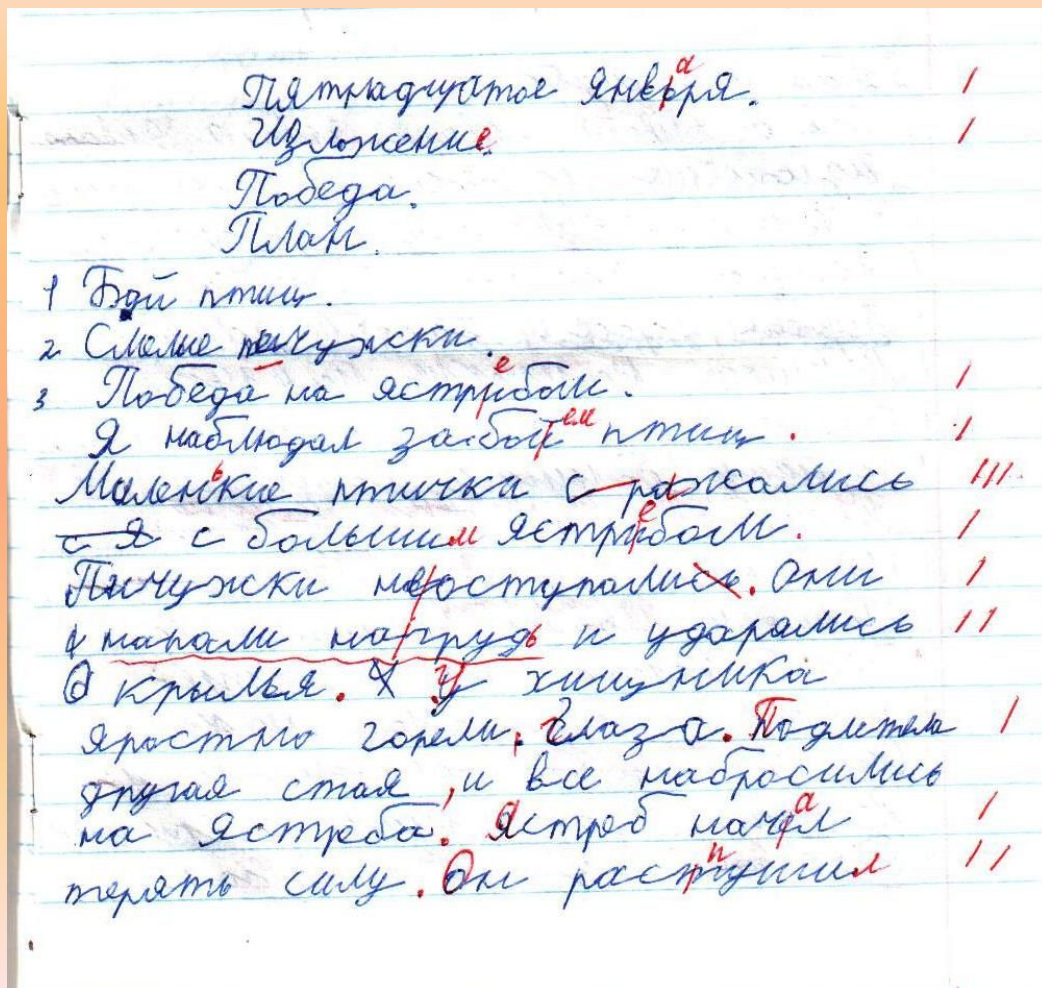 Пятнадцатое январря. а |
Изложение. |
Победа.
План.
1 Бой птиц.
2 Смелые пичужки.
3 Победа на ястрибом. е |
Я наблюдал за бой ем птиц. |
Маленькие птички с ражались |||
с я с большим ястрибом. е |
Пичужки не оступались. Они |
напали на грудь и ударялись ||
о крылья. У хищника
яростно горели глаза. Подлетела |
другая стая, и все набросились
на ястреба. Ястреб начел а |
терять силу. Он растушил п ||